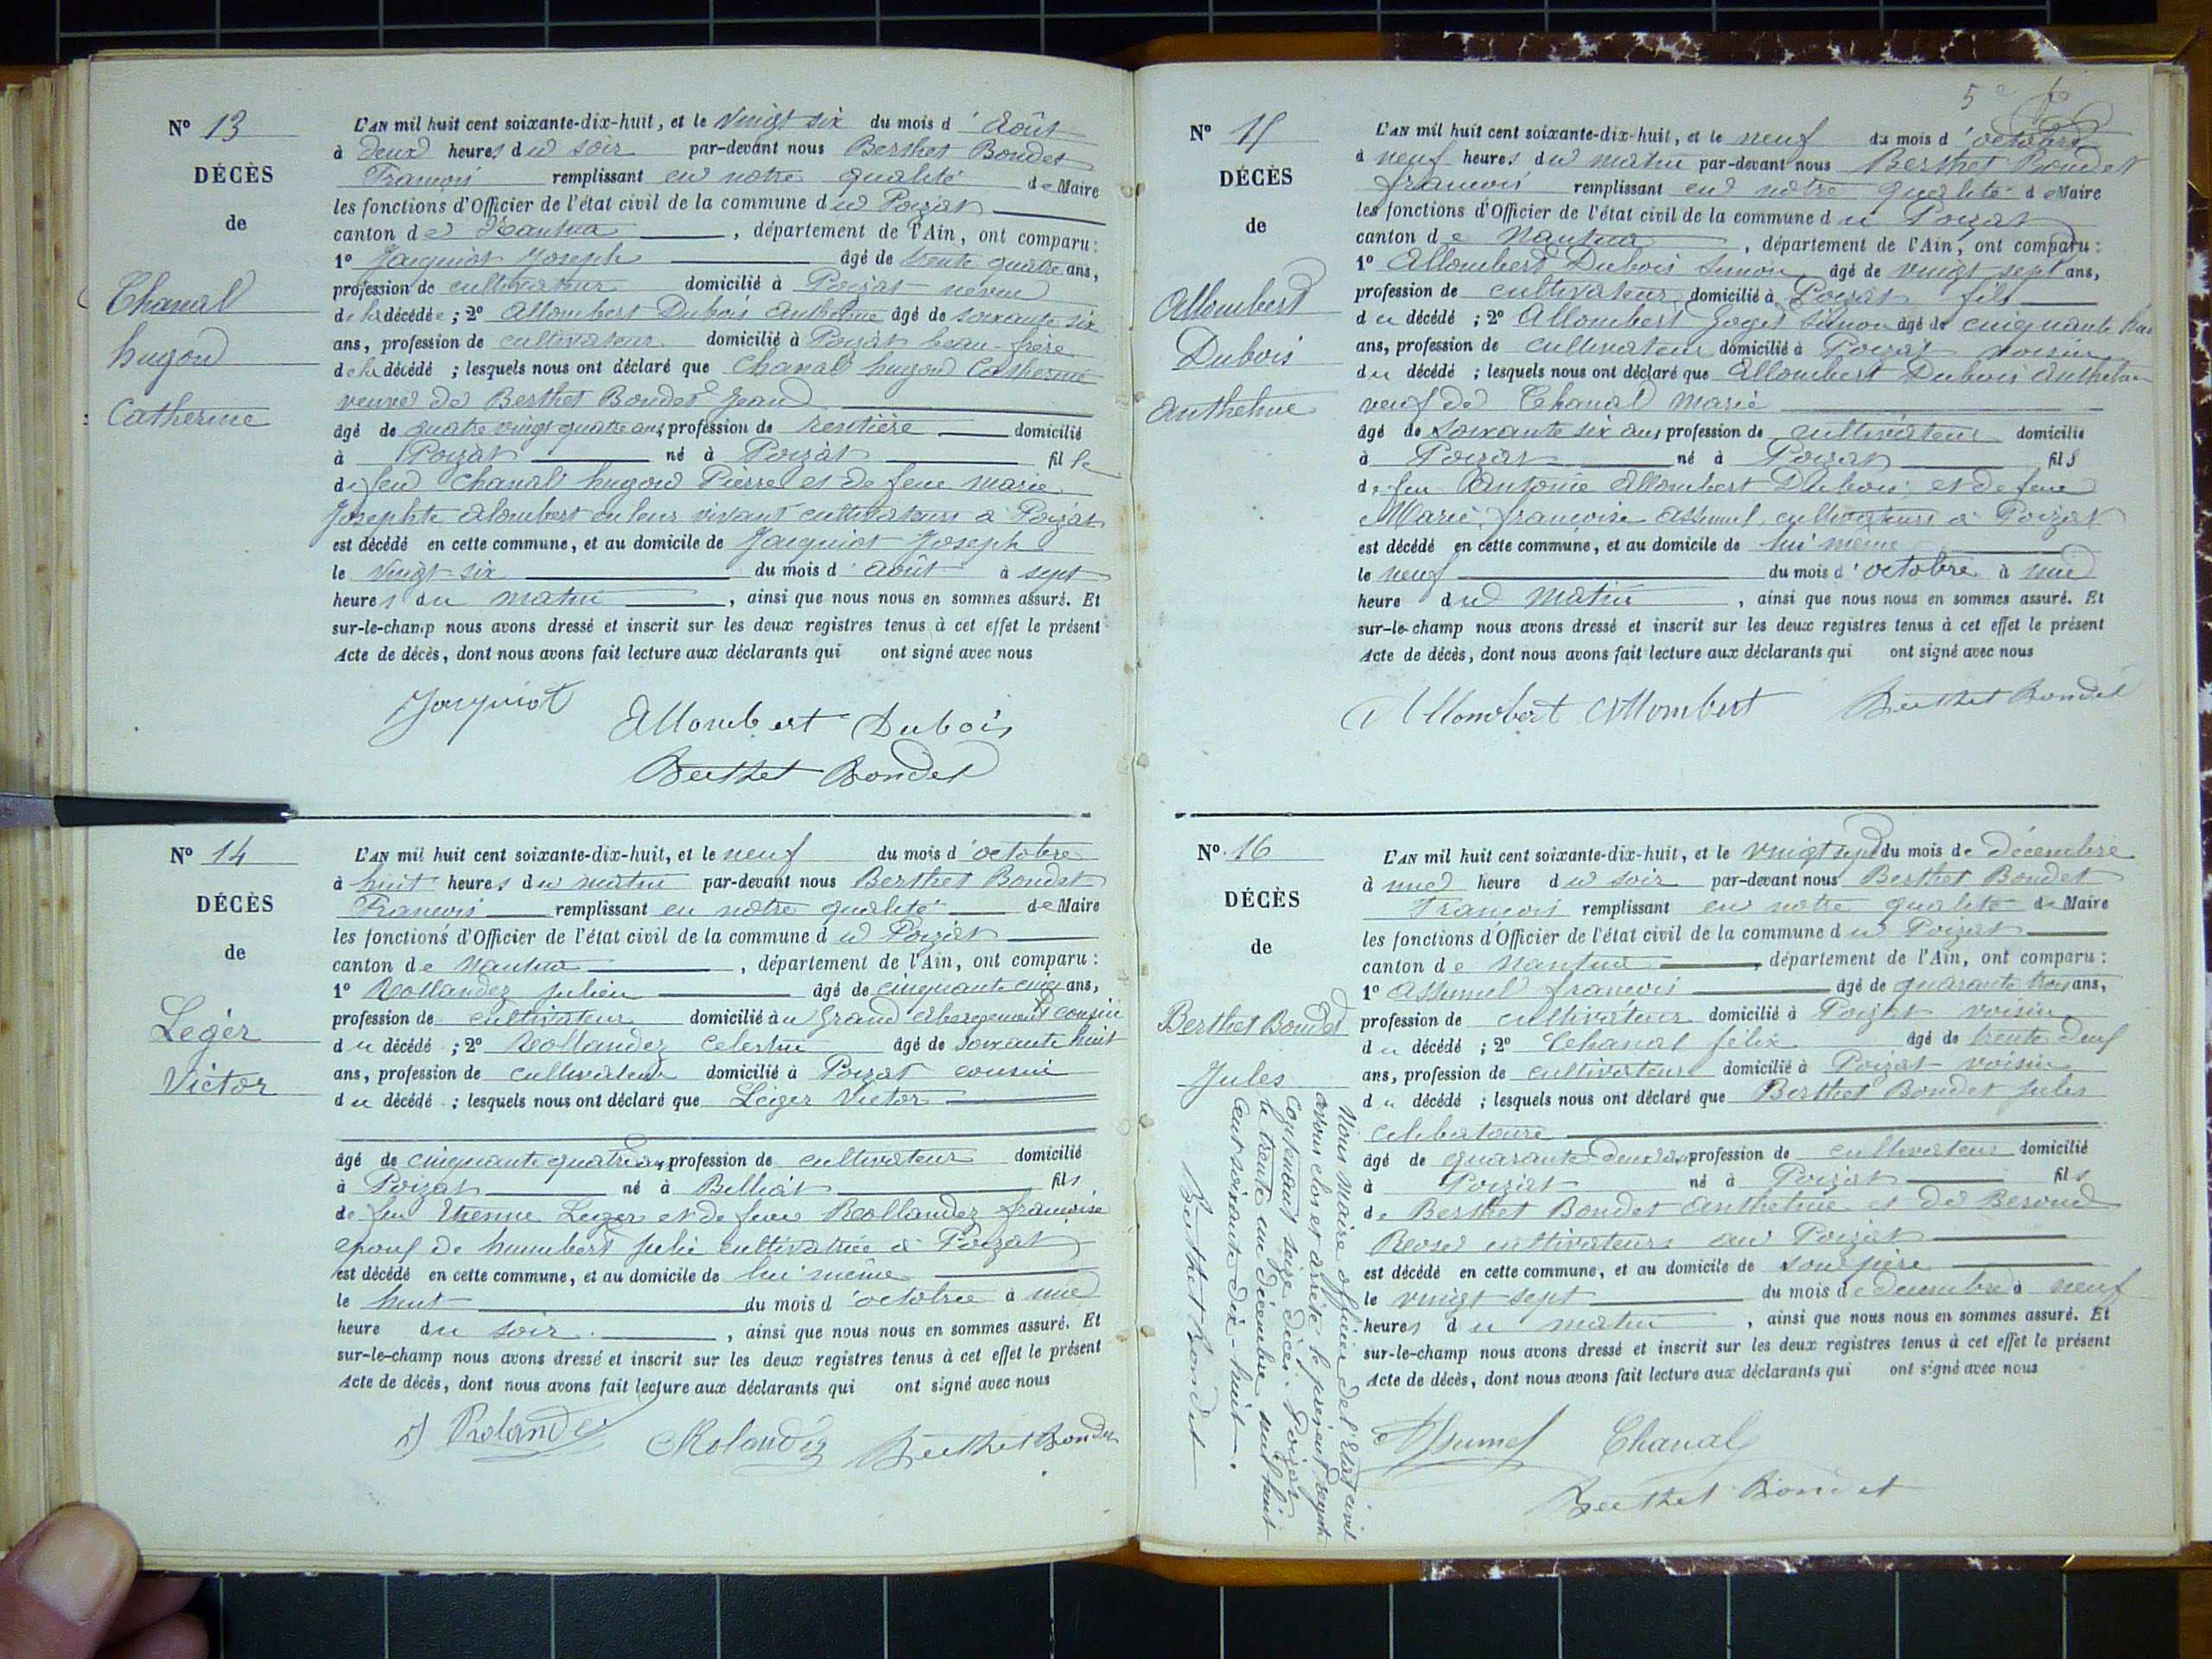 Nº 13
DÉCÈS
de
Chanal
hugon
Catherine
L'AN mil huit cent soixante-dix-huit, et le vingt six du mois d'Août
à deux heures du soir par-devant nous Berthet Bondet
François remplissant en notre qualité de Maire
les fonctions d'Officier de l'état civil de la commune du Poizat
canton de Nantua, département de l'Ain, ont comparu :
1º Jacquiot Joseph âgé de trente quatre ans,
profession de cultivateur domicilié à Poizat neveu
de la décédée ; 2º Allombert Dubois anthelme âgé de soixante six
ans, profession de cultivateur domicilié à Poizat beau-frère
de la décédé ; lesquels nous ont déclaré que Chanal hugon Catherine
veuve de Berthet Bondet Jean
âgé de quatre vingt quatre ans profession de rentière domicilié
à Poizat né à Poizat fille
de feu Chanal hugon Pierre et de feue marie
Josephte alombert en leur vivant cultivateurs à Poizat
est décédé en cette commune, et au domicile de Jacquiot Joseph
le vingt six du mois d'août à sept
heures du matin, ainsi que nous nous en sommes assuré. Et
sur-le-champ nous avons dressé et inscrit sur les deux registres tenus à cet effet le présent
Acte de décès, dont nous avons fait lecture aux déclarants qui ont signé avec nous
Jacquiot
Allombert Dubois
Berthet Bondet
Nº 14
DÉCÈS
de
Leger
Victor
L'AN mil huit cent soixante-dix-huit, et le neuf du mois d'octobre
à huit heures du matin par-devant nous Berthet Bondet
François remplissant en notre qualité de Maire
les fonctions d'Officier de l'état civil de la commune du Poizat
canton de Nantua, département de l'Ain, ont comparu :
1º Rollandez julien âgé de cinquante cinq ans,
profession de cultivateur domicilié au Grand abergement cousin
du décédé ; 2º Rollandez Celestin âgé de soixante huit
ans, profession de cultivateur domicilié à Poizat cousin
du décédé ; lesquels nous ont déclaré que Léger Victor
âgé de cinquante quatre ans profession de cultivateur domicilié
à Poizat né à Belliat fils
de feu Etienne Leger et de feue Rollandez françoise
epoux de humbert julie cultivatrice à Poizat
est décédé en cette commune, et au domicile de lui même
le huit du mois d'octobre à une
heure du soir, ainsi que nous nous en sommes assuré. Et
sur-le-champ nous avons dressé et inscrit sur les deux registres tenus à cet effet le présent
Acte de décès, dont nous avons fait lecture aux déclarants qui ont signé avec nous
Rolandez Rolandez Berthet Bondet
Nº 15
DÉCÈS
de
Allombert
Dubois
Anthelme
L'AN mil huit cent soixante-dix-huit, et le neuf du mois d'octobre
à neuf heures du matin par-devant nous Berthet Bondet
françois remplissant en notre qualité de Maire
les fonctions d'Officier de l'état civil de la commune du Poizat
canton de Nantua, département de l'Ain, ont comparu :
1º Allombert Dubois Simon âgé de vingt sept ans,
profession de cultivateur domicilié à Poizat fils
du décédé ; 2º Allombert Goget Simon âgé de cinquante
ans, profession de cultivateur domicilié à Poizat voisin
du décédé ; lesquels nous ont déclaré que Allombert Dubois anthelme
veuf de Chanal marie
âgé de soixante six ans profession de cultivateur domicilié
à Poizat né à Poizat fils
de feu Antoine Allombert Dubois et de feue
Marie françoise assumel cultivateurs à Poizat
est décédé en cette commune, et au domicile de lui même
le neuf du mois d'octobre à une
heure du matin, ainsi que nous nous en sommes assuré. Et
sur-le-champ nous avons dressé et inscrit sur les deux registres tenus à cet effet le présent
Acte de décès, dont nous avons fait lecture aux déclarants qui ont signé avec nous
Allombert Allombert Berthet Bondet
Nº 16
DÉCÈS
de
Berthet Bondet
Jules
L'AN mil huit cent soixante-dix-huit, et le vingt sept du mois de décembre
à une heure du soir par-devant nous Berthet Bondet
François remplissant en notre qualité de Maire
les fonctions d'Officier de l'état civil de la commune du Poizat
canton de Nantua, département de l'Ain, ont comparu :
1º Assumel françois âgé de quarante trois ans,
profession de cultivateur domicilié à Poizat voisin
du décédé ; 2º Chanal félix âgé de trente deux
ans, profession de cultivateur domicilié à Poizat voisin
du décédé ; lesquels nous ont déclaré que Berthet Bondet jules
celibataire
âgé de quarante deux ans profession de cultivateur domicilié
à Poizat né à Poizat fils
de Berthet Bondet Anthelme et de Beroud
Rose cultivateurs au Poizat
est décédé en cette commune, et au domicile de son père
le vingt sept du mois de decembre à neuf
heures du matin, ainsi que nous nous en sommes assuré. Et
sur-le-champ nous avons dressé et inscrit sur les deux registres tenus à cet effet le présent
Acte de décès, dont nous avons fait lecture aux déclarants qui ont signé avec nous
Assumel Chanal
Berthet Bondet
Nous Maire officier de l'Etat civil
avons clos et arrêté le présent registre
contenant seize décès. Poizat
le trente un décembre mil huit
cent soixante dix-huit.
Berthet Bondet